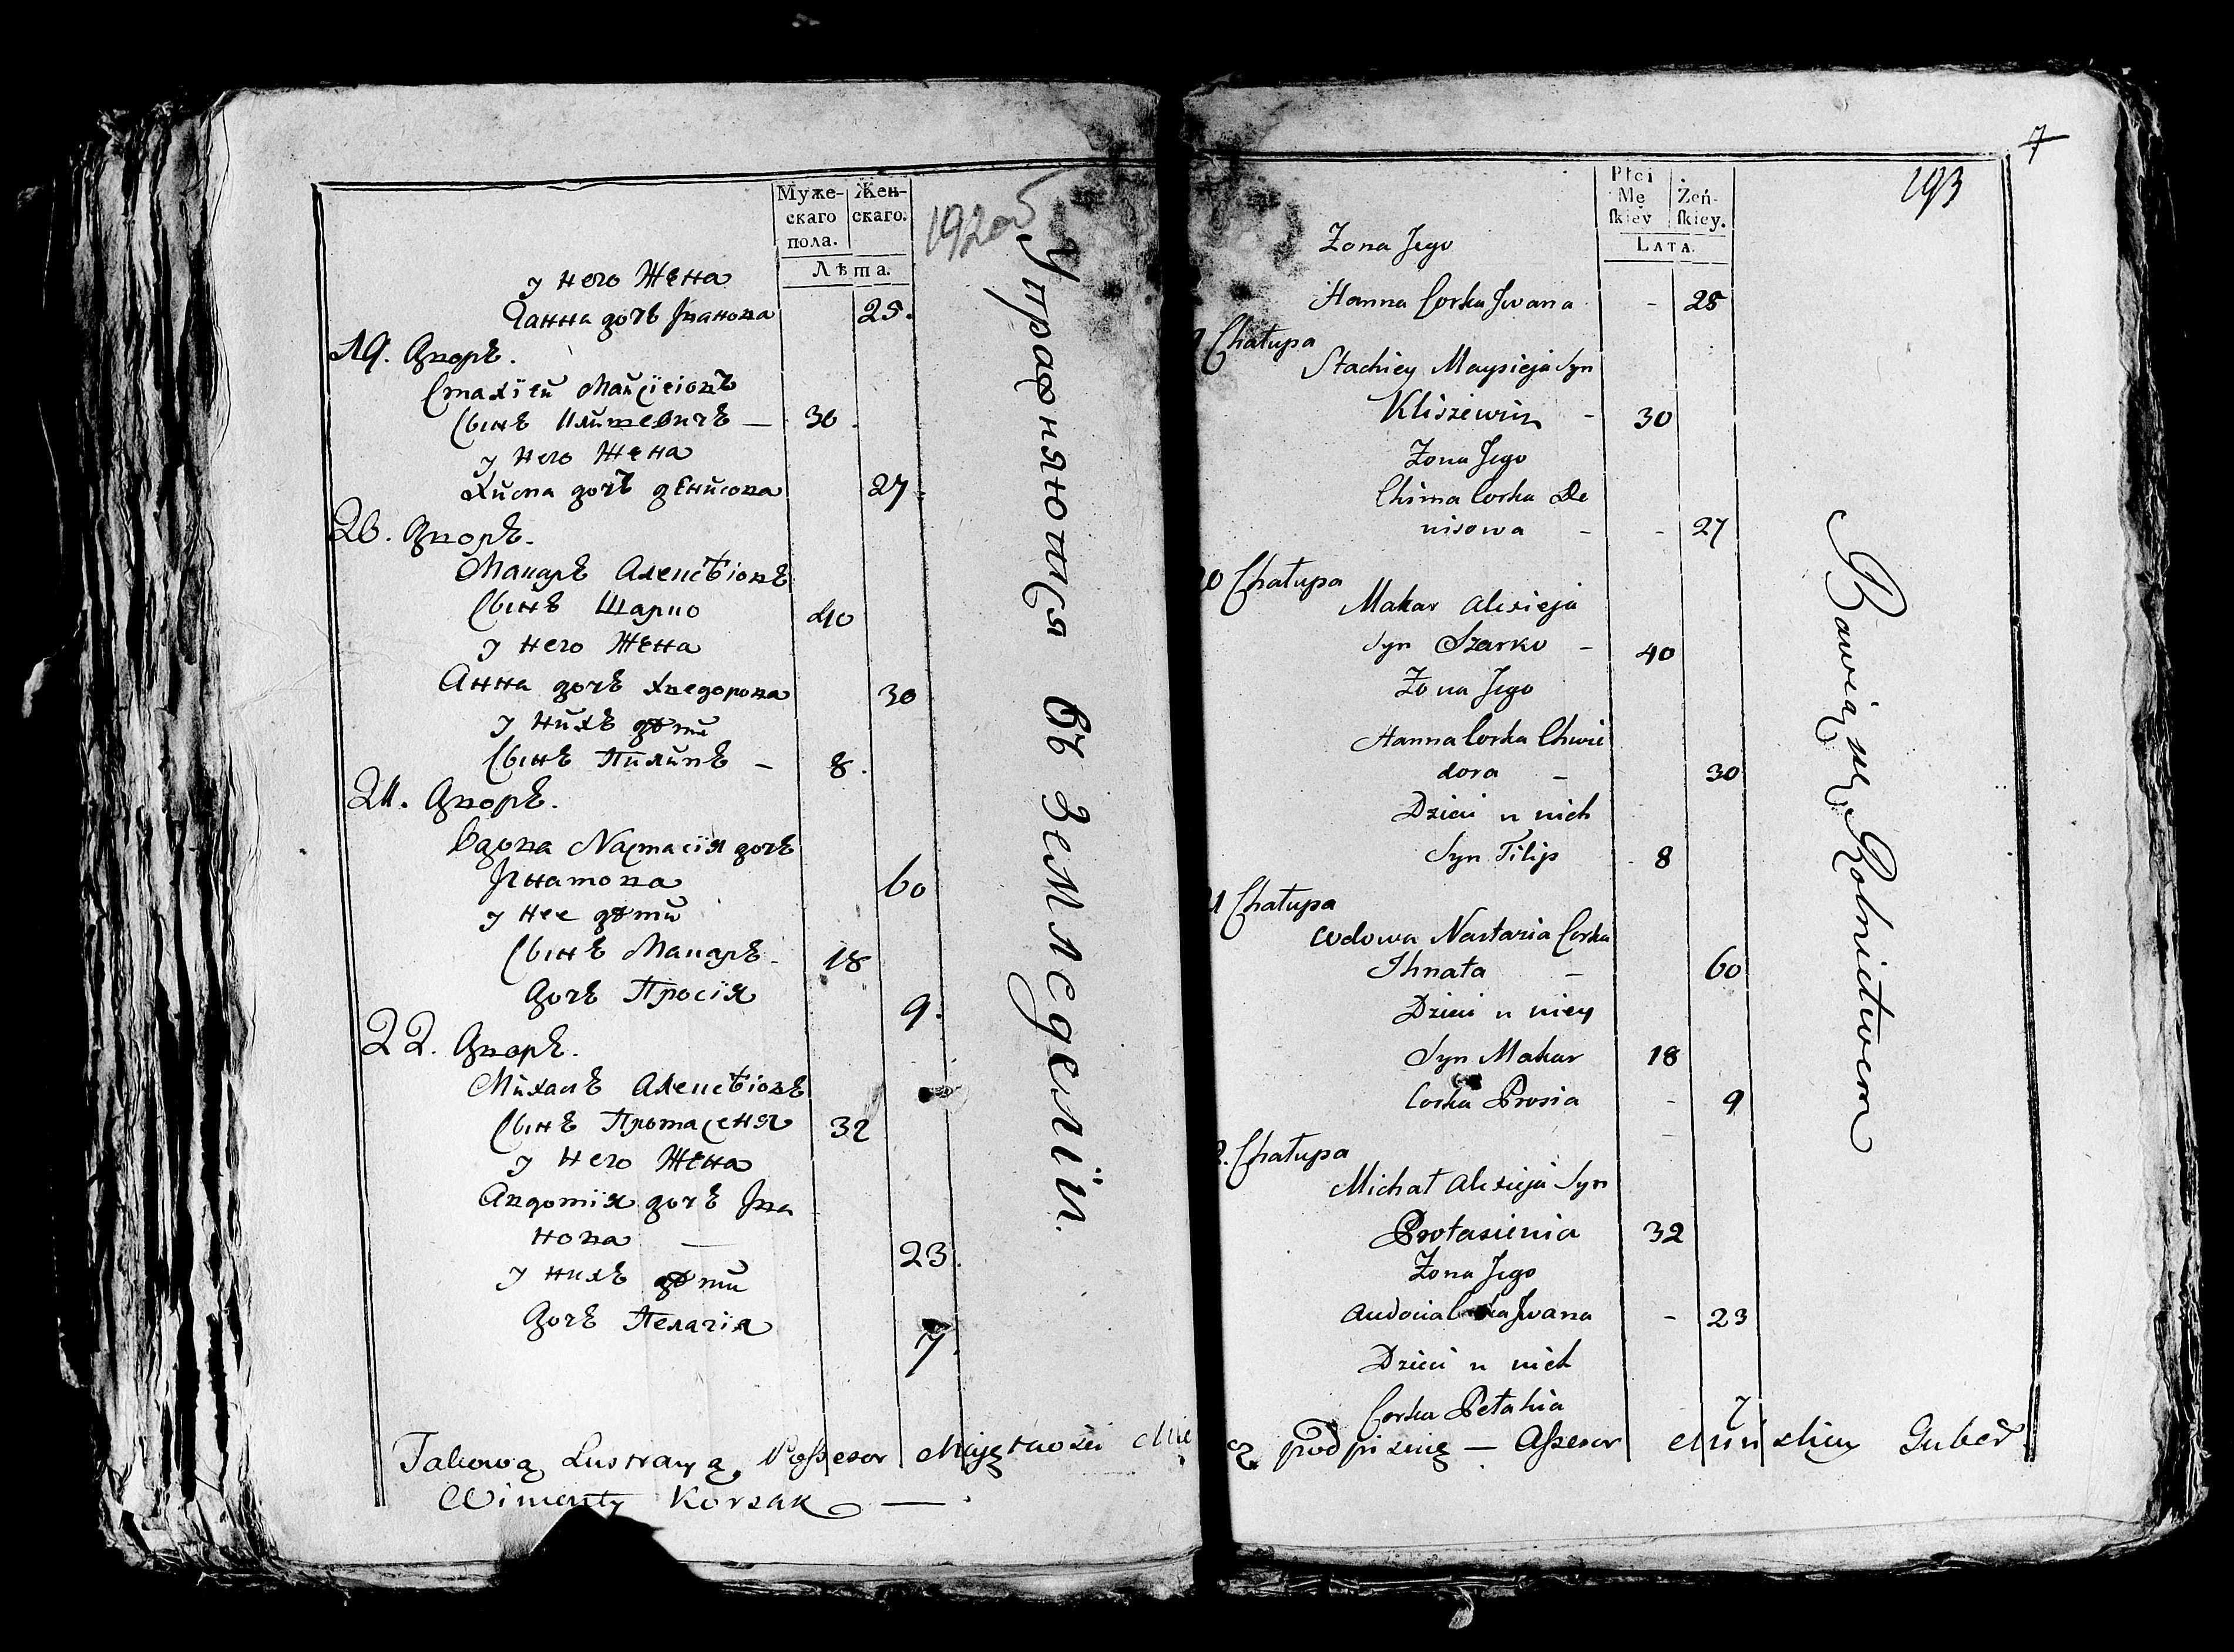 Муже-
скаго
пола.
Жен-
скаго.
Лѣта.
192 об
у него Жена
Ганна дочь Іванова
25.
19. Дворъ.
Стахіей Майсіеіовъ
Сынъ Клишевичъ —
30.
у него Жена
Химка дочь денисова
27.
20. Дворъ.
Макаръ Алексѣіовъ
Сынъ Шарко
40
у него Жена
Анна дочь Хведорова
30
у нихъ дѣти
Сынъ Пилипъ —
8.
21. Дворъ.
Вдова Настасія дочь
Ігнатова
60
у нее дѣти
Сынъ Макаръ -
18
Дочь Просія
9.
22. Дворъ.
Михалъ Алексѣіовъ
Сынъ Протасеня
32
у него Жена
Авдотія дочь Іва
нова —
23.
у нихъ дѣти
Дочь Пелагія
7.
Упражняются въ земледеліи.
Płci
Mę
skiey
Żeń-
skiey.
LATA.
193
7
Zona Jego
Hanna Corka Jwana - 25
Chałupa
Stachiey Maysieja Syn
Kliszewicz - 30
Zona Jego
Chima Corka De
nisowa - - 27
0 Chałupa
Makar Alexieja
Syn Szarko - 40
Zona Jego
Hanna Corka Chwie
dora - 30
Dzieci u nich
Syn Filip - 8
1 Chałupa
Wdowa Nastazia Corka
Ihnata - 60
Dzieci u niey
Syn Makar 18
Corka Prosia - 9
2. Chałupa
Michał Alexieja Syn
Protasienia 32
Zona Jego
Audocia Corka Jwana - 23
Dzieci u nich
Corka Pełahia 7
Bawią się Rolnictwem
Takową Lustracyą Possesor Maiętnosci podpisuię — Assesor Minskiey Guber.
Wincenty Korsak —.